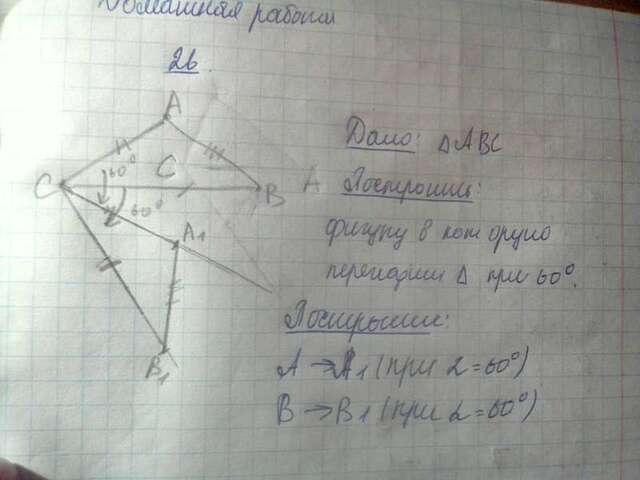 Домашняя работа
2б.
A
C
60°
C
B
A
60°
A1
B1
Дано: ΔABC
Построить:
фигуру в которую
переидёт Δ при 60°.
Построим:
A → A1 (при α = 60°)
B → B1 (при α = 60°)